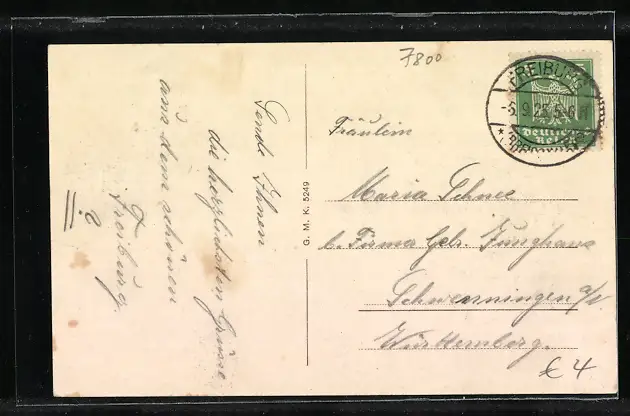 7800
Sende Ihnen
die herzlichsten Grüsse
aus dem schönen
Freiburg.
G. M. K. 5249
FREIBURG
-5.9.25.5-6
Deutsches
Reich
Fräulein
Maria Schnee
b. Firma Gebr. Junghans
Schwenningen a/N.
Württemberg.
€ 4